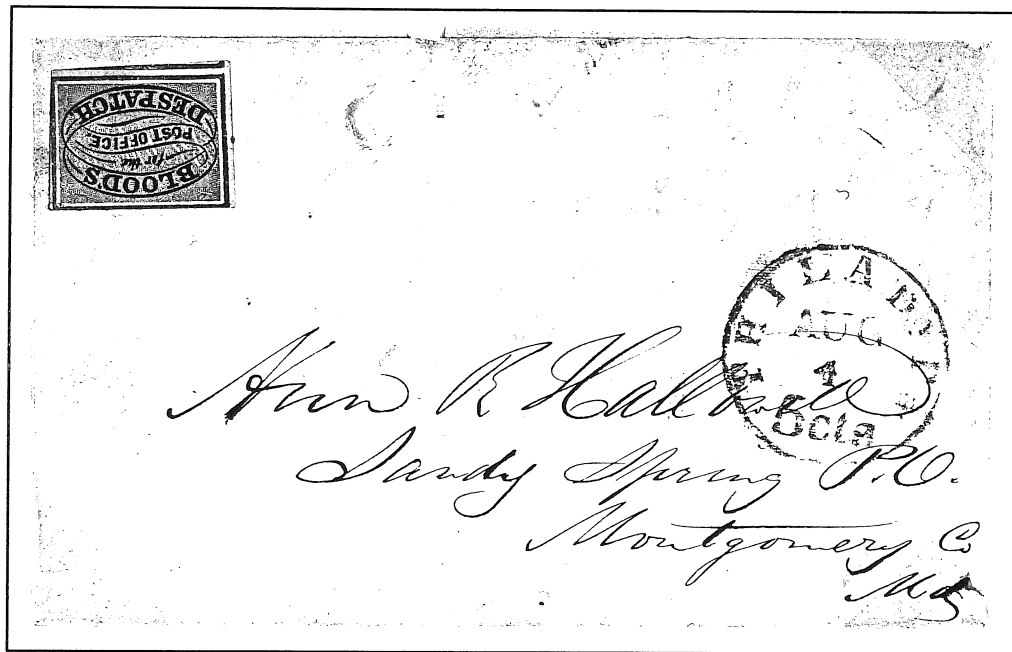 BLOOD'S
for the
POST OFFICE.
DESPATCH
PHILADA
AUG
4
5 cts
Ann R Hallowell
Sandy Spring P.O.
Montgomery Co
Md